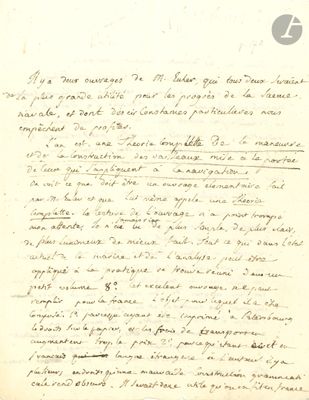 Il y a deux ouvrages de M. Euler, qui tous deux seraient
de la plus grande utilité pour les progrès de la Science
navale, et dont des circonstances particulieres nous
empêchent de profiter.
L'un est une Théorie complette de la manœuvre
et de la construction des vaisseaux mise à la portée
de ceux qui s'appliquent à la navigation.
On voit ce que doit être un ouvrage élémentaire fait
par M. Euler et que lui même appele une Théorie
complette. la lecture de l'ouvrage n'a point trompé
mon attente, je n'ai vu de plus simple, de plus clair,
de plus lumineux de mieux fait. Tout ce qui dans l'état
actuel de la marine et de l'analyse peut être
appliqué à la pratique se trouve réuni dans un
petit volume 8°. cet excellent ouvrage ne peut
remplir pour la france l'objet pour lequel il a été
1° parce qu'ayant été imprimé à Petersbourg
les droits sur le papier, et les frais de transport en
augmentent trop le prix 2° parce qu'étant écrit en
français langue étrangère à l'auteur il y a
plusieurs endroits qu'une mauvaise construction grammati
cale rend obscurs. Il serait donc utile qu'on en fit en france